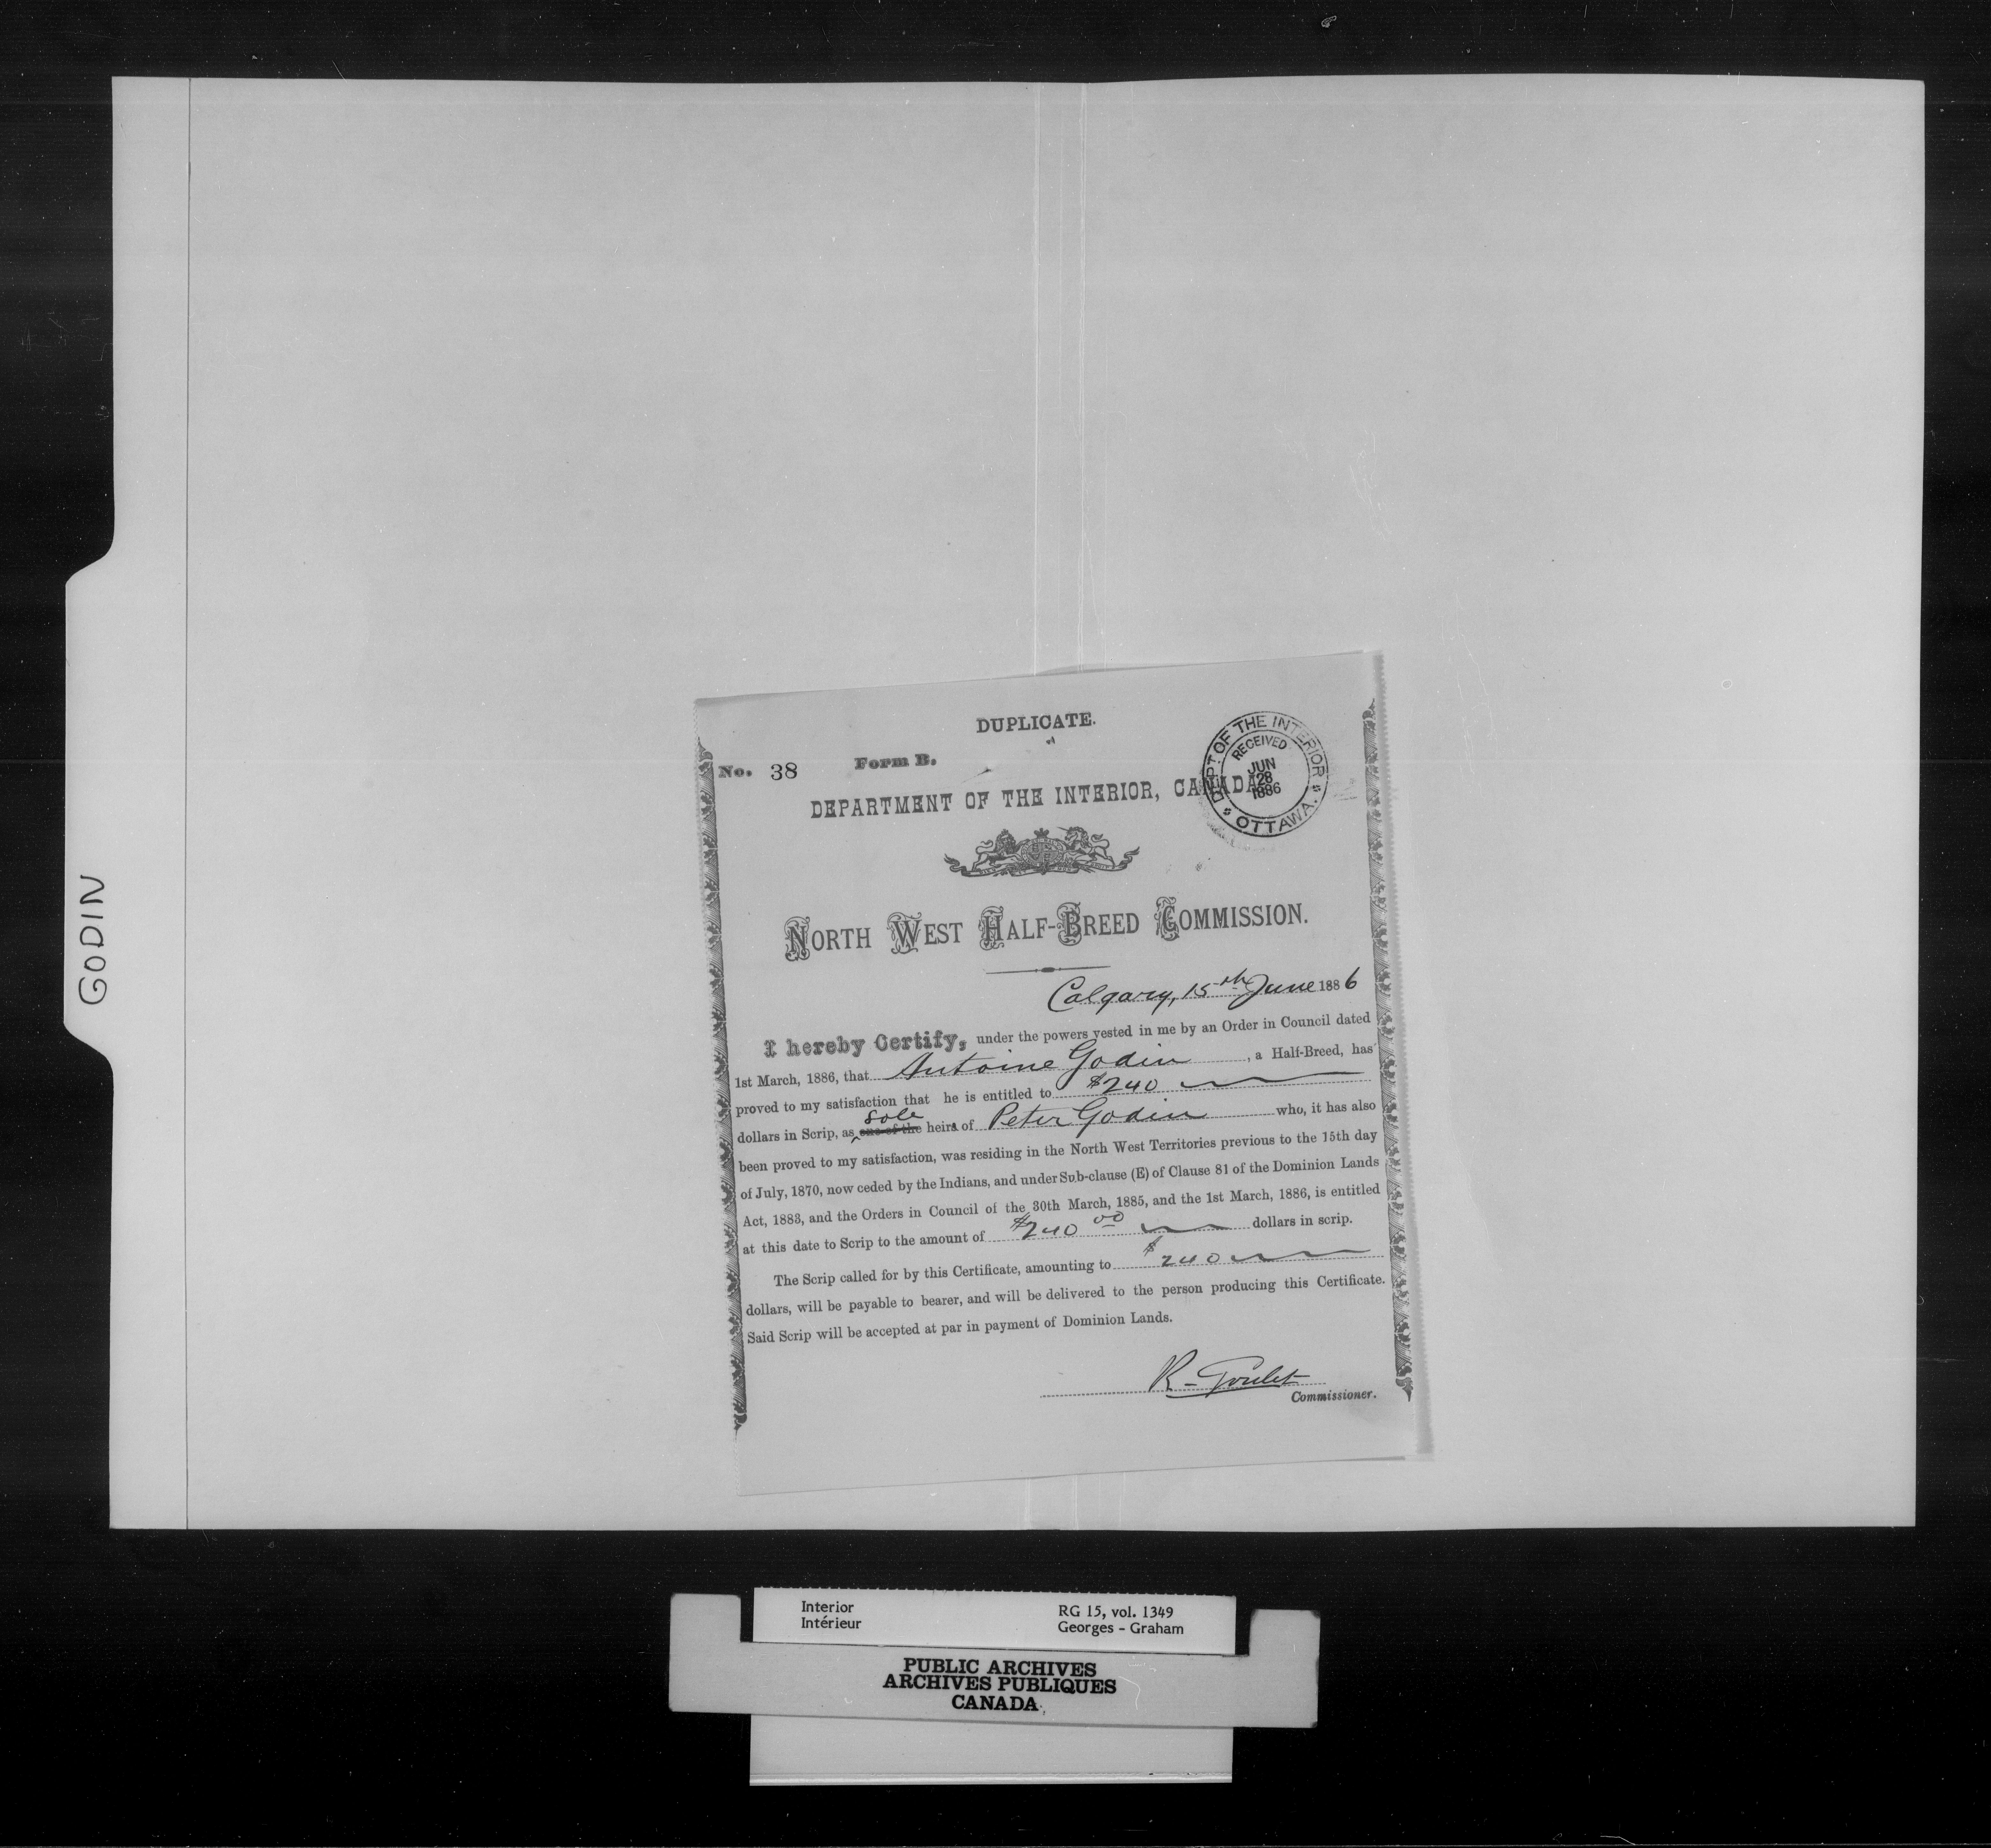 GODIN
DUPLICATE.
No. 38 Form B.
DEPT. OF THE INTERIOR
RECEIVED
JUN
28
1886
OTTAWA.
DEPARTMENT OF THE INTERIOR, CANADA.
NORTH WEST HALF-BREED COMMISSION.
Calgary, 15th June 1886
I hereby Certify, under the powers vested in me by an Order in Council dated
1st March, 1886, that Antoine Godin, a Half-Breed, has
proved to my satisfaction that he is entitled to $240
sole
dollars in Scrip, as one of the heirs of Peter Godin who, it has also
been proved to my satisfaction, was residing in the North West Territories previous to the 15th day
of July, 1870, now ceded by the Indians, and under Sub-clause (E) of Clause 81 of the Dominion Lands
Act, 1883, and the Orders in Council of the 30th March, 1885, and the 1st March, 1886, is entitled
at this date to Scrip to the amount of $240 00 dollars in scrip.
The Scrip called for by this Certificate, amounting to $240
dollars, will be payable to bearer, and will be delivered to the person producing this Certificate.
Said Scrip will be accepted at par in payment of Dominion Lands.
R. Goulet
Commissioner.
Interior RG 15, vol. 1349
Intérieur Georges - Graham
PUBLIC ARCHIVES
ARCHIVES PUBLIQUES
CANADA